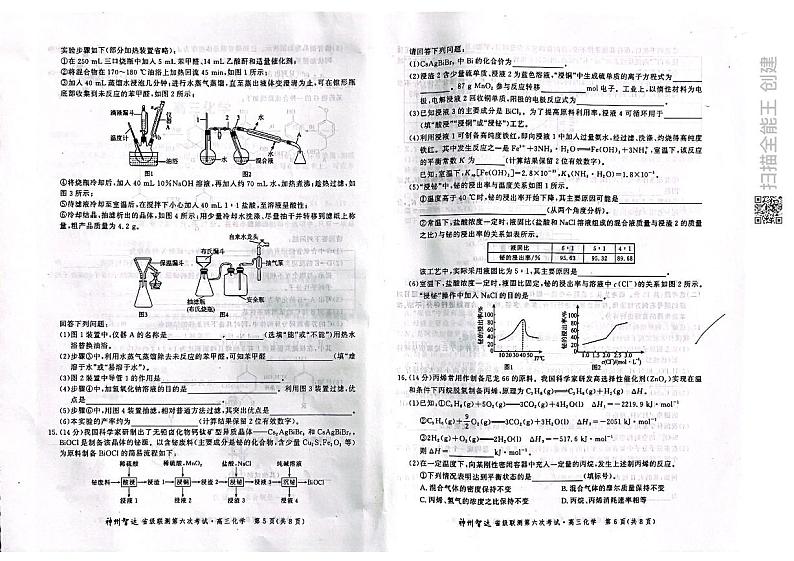 实验步骤如下(部分加热装置省略):
①在 250 mL 三口烧瓶中加入 5 mL 苯甲醛、14 mL 乙酸酐和适量催化剂;
②将混合物在 170~180 ℃油浴上加热回流 45 min,如图 1 所示;
③加入 40 mL 蒸馏水浸泡几分钟,进行水蒸气蒸馏,直至蒸出液体变澄清为止,可在锥形瓶
底部收集到未反应的苯甲醛,如图 2 所示;
滴液漏斗
温度计
A
油浴
水
混合液
水
图1
图2
④将烧瓶冷却后,加入 40 mL 10%NaOH 溶液,再加入约 70 mL 水,加热煮沸;趁热过滤,如
图 3 所示;
⑤待滤液冷却至室温后,在搅拌下小心加入 40 mL 1∶1盐酸,至溶液呈酸性;
⑥冷却结晶,抽滤析出的晶体,如图 4 所示;用少量冷却水洗涤、尽量抽干并转移到滤纸上称
量,粗产品质量为 4.2 g。
自来水龙头
保温漏斗
布氏漏斗
抽气泵
抽滤瓶
(布氏烧瓶)
安全瓶
图3
图4
回答下列问题:
(1)图 1 装置中,仪器 A 的名称是 , (选填“能”或“不能”)用热水
浴替换油浴。
(2)步骤③中,利用水蒸气蒸馏除去未反应的苯甲醛,可知苯甲醛 (填“难
溶于水”或“易溶于水”)。
(3)图 2 装置中导管 1 的作用是 。
(4)步骤④中,加氢氧化钠溶液的目的是 。利用图 3 装置过滤,优
点是 。
(5)步骤⑥中,用图 4 装置抽滤,相对普通方法过滤,其突出优点是 。
(6)本实验的产率约为 (计算结果保留 2 位有效数字)。
15.(14 分)我国科学家研制出了无铅卤化物钙钛矿型异质晶体——Cs₂AgBiBr₆ 和 CsAgBiBr₇。
BiOCl 是制备该晶体的铋源。以含铋废料(主要成分是铋的化合物,含少量 Cu₂S、Fe₂O₃ 等)
为原料制备 BiOCl 的简易流程如下:
稀硫酸 稀硫酸、MnO₂ 盐酸、NaCl 纯碱溶液
铋废料→酸浸→浸渣 1→浸铜→浸渣 2→浸铋→浸液 3→沉铋→BiOCl
浸液 1 浸液 2 浸渣 3 浸液 4
神州智达 省级联测第六次考试·高三化学 第 5 页(共 8 页)
请回答下列问题:
(1)CsAgBiBr₇ 中 Bi 的化合价为 。
(2)浸渣 2 含少量硫单质,浸液 2 为蓝色溶液,“浸铜”中生成硫单质的离子方程式为
。87 g MnO₂ 参与反应转移 mol 电子。工业上,以惰性材料为电
极,电解浸液 2 回收铜单质,阳极的电极反应式为 。
(3)已知浸液 3 的主要成分是 BiCl₃。为了提高原料利用率,浸液 4 可循环用于
(填“酸浸”“浸铜”或“浸铋”)工艺。
(4)利用浸液 1 可制备高纯度铁红,即向浸液 1 中加入过量氨水,经过滤、洗涤、灼烧得高纯度
铁红。其中发生反应之一是 Fe³⁺+3NH₃·H₂O═Fe(OH)₃+3NH₄⁺,室温下,该反应
的平衡常数 K 为 (计算结果保留 2 位有效数字)。
已知:室温下,Kₛₚ[Fe(OH)₃]=2.8×10⁻³⁹,K_b(NH₃·H₂O)=1.8×10⁻⁵。
(5)“浸铋”中,铋的浸出率与温度关系如图 1 所示。
①温度高于 40 ℃时,铋的浸出率开始下降,其主要原因可能是
(从两个角度分析)。
②常温下,盐酸浓度一定时,液固比(盐酸和 NaCl 溶液组成的混合液质量与浸渣 2 的质量
之比)与铋的浸出率的关系如表所示。
液固比 6∶1 5∶1 4∶1
铋的浸出率/% 95.63 95.32 89.68
该工艺中,实际采用液固比为 5∶1,其主要原因是 。
(6)室温下,盐酸浓度一定时,液固比固定,铋的浸出率与溶液中 c(Cl⁻)的关系如图 2 所示。
“浸铋”操作中加入 NaCl 的目的是 。
铋的浸出率/%
100
80
60
40
20
10 20 30 40 50 T/℃
图1
铋的浸出率/%
100
80
60
40
20
0 1.0 1.5 2.0 2.5 3.0
c(Cl⁻)/(mol·L⁻¹)
图2
16.(14 分)丙烯常用作制备尼龙 66 的原料。我国科学家研发高选择性催化剂(ZnOₓ)实现在温
和条件下丙烷脱氢制备丙烯,原理为 C₃H₈(g)⇌C₃H₆(g)+H₂(g) ΔH。
(1)已知:①C₃H₈(g)+5O₂(g)═3CO₂(g)+4H₂O(l) ΔH₁=-2219.9 kJ·mol⁻¹
②C₃H₆(g)+9/2O₂(g)═3CO₂(g)+3H₂O(l) ΔH₂=-2051 kJ·mol⁻¹
③2H₂(g)+O₂(g)═2H₂O(l) ΔH₃=-517.6 kJ·mol⁻¹
则 ΔH= kJ·mol⁻¹。
(2)在一定温度下,向某刚性密闭容器中充入一定量的丙烷,发生上述制丙烯的反应。
①下列情况表明达到平衡状态的是 (填标号)。
A.混合气体的密度保持不变 B.混合气体的摩尔质量保持不变
C.丙烯、氢气的浓度之比保持不变 D.丙烷、丙烯消耗速率相等
神州智达 省级联测第六次考试·高三化学 第 6 页(共 8 页)
扫描全能王 创建